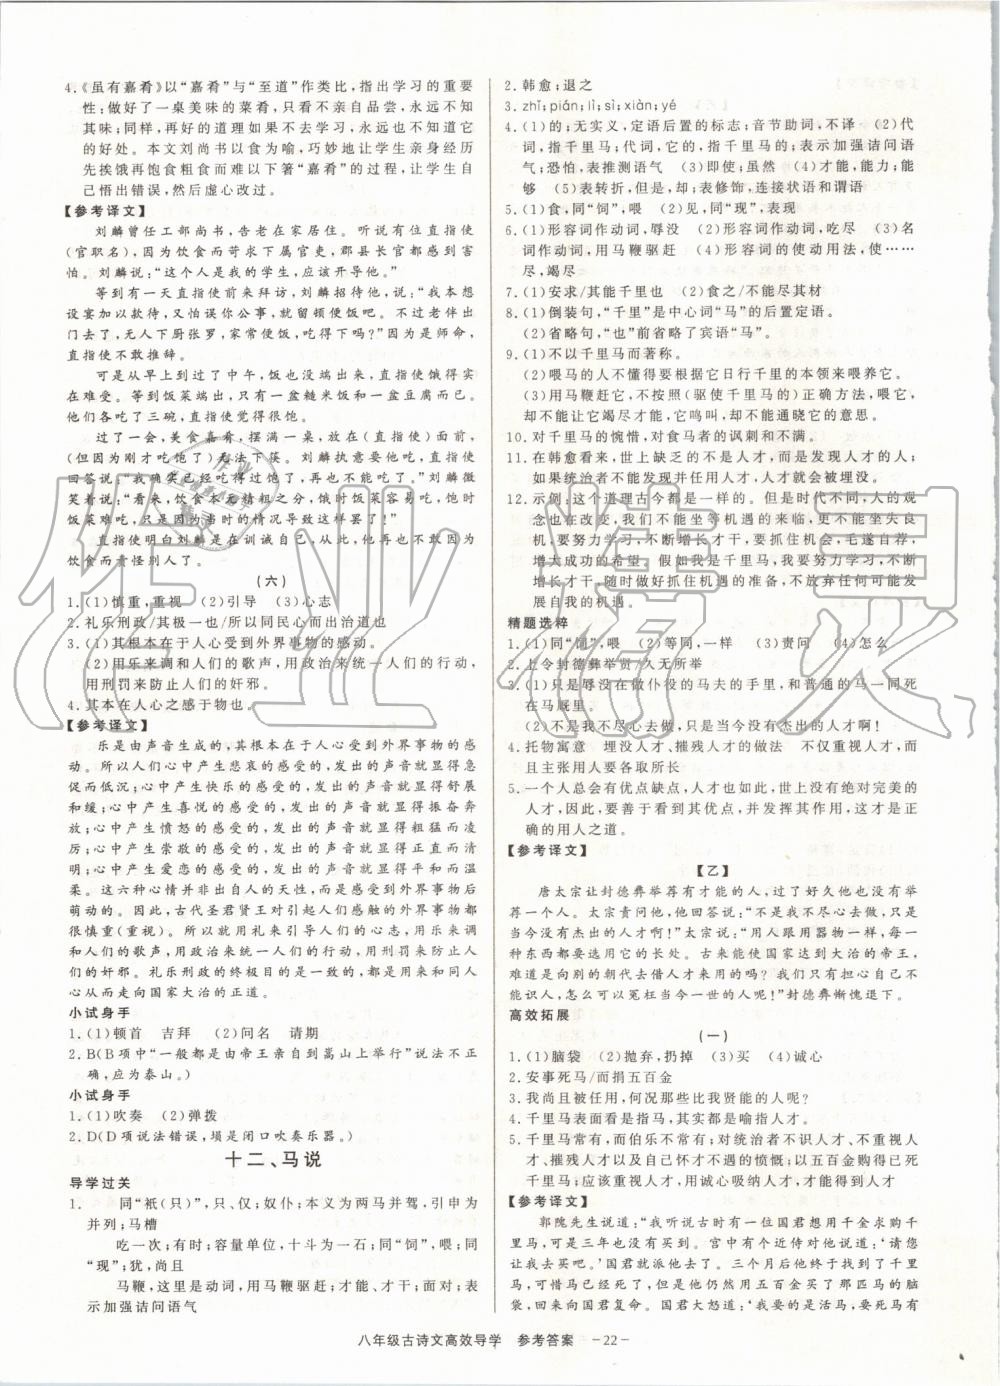 4.《虽有嘉肴》以“嘉肴”与“至道”作类比，指出学习的重要
性；做好了一桌美味的菜肴，只看不亲自品尝，永远不知
其味；同样，再好的道理如果不去学习，也永远不知道它
的好处。本文刘尚书以此为喻，巧妙地让学生亲身经历
先挨饿再饱食粗食而难以下箸“嘉肴”的过程，让学生自
己悟出错误，然后虚心改过。
【参考译文】
刘麟曾任工部尚书，告老在家居住。听说有位直指使
(官职名)，因为饮食而苛求下属官吏、郡县长官都感到害
怕。刘麟说：“这个人是我的学生，应该开导他。”
等到有一天直指使前来拜访，刘麟招待他，说：“我本想
设宴加以款待，又怕误你公事，就留顿便饭吧。不过老伴出
门去了，无人下厨张罗，家常便饭，吃得下吗？”因为是师命，
直指使不敢推辞。
可是从早上到过了中午，饭也没端出来，直指使饿得实
在难受。等到饭菜端出，只有一盒糙米饭和一盆豆腐而已。
他们各吃了三碗，直指使觉得很饱。
过了一会，美食嘉肴，摆满一桌，放在(直指使)面前，
(但因刚才吃饱了)无法下筷。刘麟执意要他吃，直指使
回答说：“我确实已经吃得过饱了，吃不下了。”刘麟微
笑着说：“看来，饮食本无精粗之分，饿时饭菜易吃，饱时
饭菜难吃，只是因为当时的情况导致这样罢了！”
直指使明白刘麟是在训诫自己，从此，再也不敢因为
饮食而责怪别人了。
(六)
1.(1)慎重，重视　(2)引导　(3)心志
2.礼乐刑政/其极一也/所以同民心而出治道也
3.(1)其根本在于人心受到外界事物的感动。
(2)用乐来调和人们的歌声，用政治来统一人们的行动，
用刑罚来防止人们的奸邪。
4.其本在人心之感于物也。
【参考译文】
乐是由声音生成的，其根本在于人心受到外界事物的感
动。所以人们心中产生悲哀的感受的，发出的声音就显得急
促而低沉；心中产生快乐的感受的，发出的声音就显得舒展
和缓；心中产生喜悦的感受的，发出的声音就显得振奋奔
放；心中产生愤怒的感受的，发出的声音就显得粗猛而凌
厉；心中产生崇敬的感受的，发出的声音就显得正直而清
明；心中产生爱恋的感受的，发出的声音就显得平和而温
柔。这六种心情并非出自人的天性，而是受到外界事物后
萌动的。因此，古代圣君贤王对引起人们感触的外界事物都
很慎重(重视)。所以就用礼来引导人们的心志，用乐来调
和人们的歌声，用政治来统一人们的行动，用刑罚来防止人
们的奸邪。礼乐刑政的终极目的是一致的，都是用来和同人
心从而走向国家大治的正道。
小试身手
1.(1)顿首　吉拜　(2)问名　请期
2.B(B项中“一般都是由帝王亲自到嵩山上举行”说法不正
确，应为泰山。)
小试身手
1.(1)吹奏　(2)弹拨
2.D(D项说法错误，埙是闭口吹奏乐器。)
十二、马说
导学过关
1.　同“衹(只)”，只、仅；奴仆；本义为两马并驾，引申为
并列；马槽
吃一次；有时；容量单位，十斗为一石；同“饲”，喂；同
“现”；犹，尚且
马鞭，这里是动词，用马鞭驱赶；才能、才干；面对；表
示加强诘问语气
2.韩愈；退之
3.zhǐ；pián；lì；sì；xiàn；yé
4.(1)的；无实义，定语后置的标志；音节助词，不译　(2)代
词，指千里马；代词，它的，指千里马的；表示加强诘问语
气；恐怕，表推测语气　(3)即使；虽然　(4)才能，能力；能
够　(5)表转折，但是，却；表修饰，连接状语和谓语
5.(1)食，同“饲”，喂　(2)见，同“现”，表现
6.(1)形容词作动词，辱没　(2)形容词作动词，吃尽　(3)名
词作动词，用马鞭驱赶　(4)形容词的使动用法，使……
尽，竭尽
7.(1)安求/其能千里也　(2)食之/不能尽其材
8.(1)倒装句，“千里”是中心词“马”的后置定语。
(2)省略句，“也”前省略了宾语“马”。
9.(1)不以千里马而著称。
(2)喂马的人不懂得要根据它日行千里的本领来喂养它。
(3)用马鞭赶它，不按照(驱使千里马的)正确方法，喂它，
却不能让它竭尽才能，它鸣叫，却不能通晓它的意思。
10.对千里马的惋惜，对食马者的讽刺和不满。
11.在韩愈看来，世上缺乏的不是人才，而是发现人才的人；
如果统治者不能发现并任用人才，人才就会被埋没。
12.示例：这个道理古今都是一样的。但是时代不同，人的观
念也在改变，我们不能坐等机遇的来临，更不能坐失良
机，要努力学习，不断增长才干，要主动寻找机会，毛遂自荐，
增大成功的希望。假如我是千里马，我要努力学习，不断
增长才干，随时做好抓住机遇的准备，不放弃任何可能发
展自我的机遇。
精题选粹
1.(1)同“饲”，喂　(2)等同，一样　(3)责问　(4)怎么
2.上令封德彝举贤/久无所举
3.(1)只是辱没在做仆役的马夫的手里，和普通的马一同死
在马厩里。
(2)不是我不尽心去做，只是当今没有杰出的人才啊！
4.托物寓意　埋没人才、摧残人才的做法　不仅重视人才，而
且主张用人要各取所长
5.一个人总会有优点缺点，人才也如此，世上没有绝对完美的
人才，因此，要善于看到其优点，并发挥其作用，这才是正
确的用人之道。
【参考译文】
【乙】
唐太宗让封德彝举荐有才能的人，过了好久他也没有举
荐一个人。太宗责问他，他回答说：“不是我不尽心去做，只是
当今没有杰出的人才啊！”太宗说：“用人跟用器物一样，每一
种东西都要选用它的长处。古来能使国家达到大治的帝王，
难道是向别的朝代去借人才来用的吗？我们只有担心自己不
能识人，怎么可以冤枉当今一世的人呢？”封德彝惭愧退下。
高效拓展
(一)
1.(1)脑袋　(2)抛弃，扔掉　(3)买　(4)诚心
2.安事死马/而捐五百金
3.我尚且被任用，何况那些比我贤能的人呢？
4.千里马表面看是指马，其实都是喻指人才。
5.千里马常有，而伯乐不常有；对统治者不识人才、不重视人
才、摧残人才以及自己怀才不遇的愤慨；以五百金买死
千里马；应该重视人才，用诚心吸纳人才，才能得到人才
【参考译文】
郭隗先生说道：“我听说古时有一位国君想用千金求购千
里马，可是三年也没有买到。宫中有个近侍对他说道：‘请您
让我去买吧。’国君就派他去了。三个月后他终于找到了千里
马，可惜马已经死了，但是他仍然用五百金买了那匹马的脑
袋，回来向国君复命。国君大怒道：‘我要的是活马，要死马有
八年级古诗文高效导学　参考答案　－22－